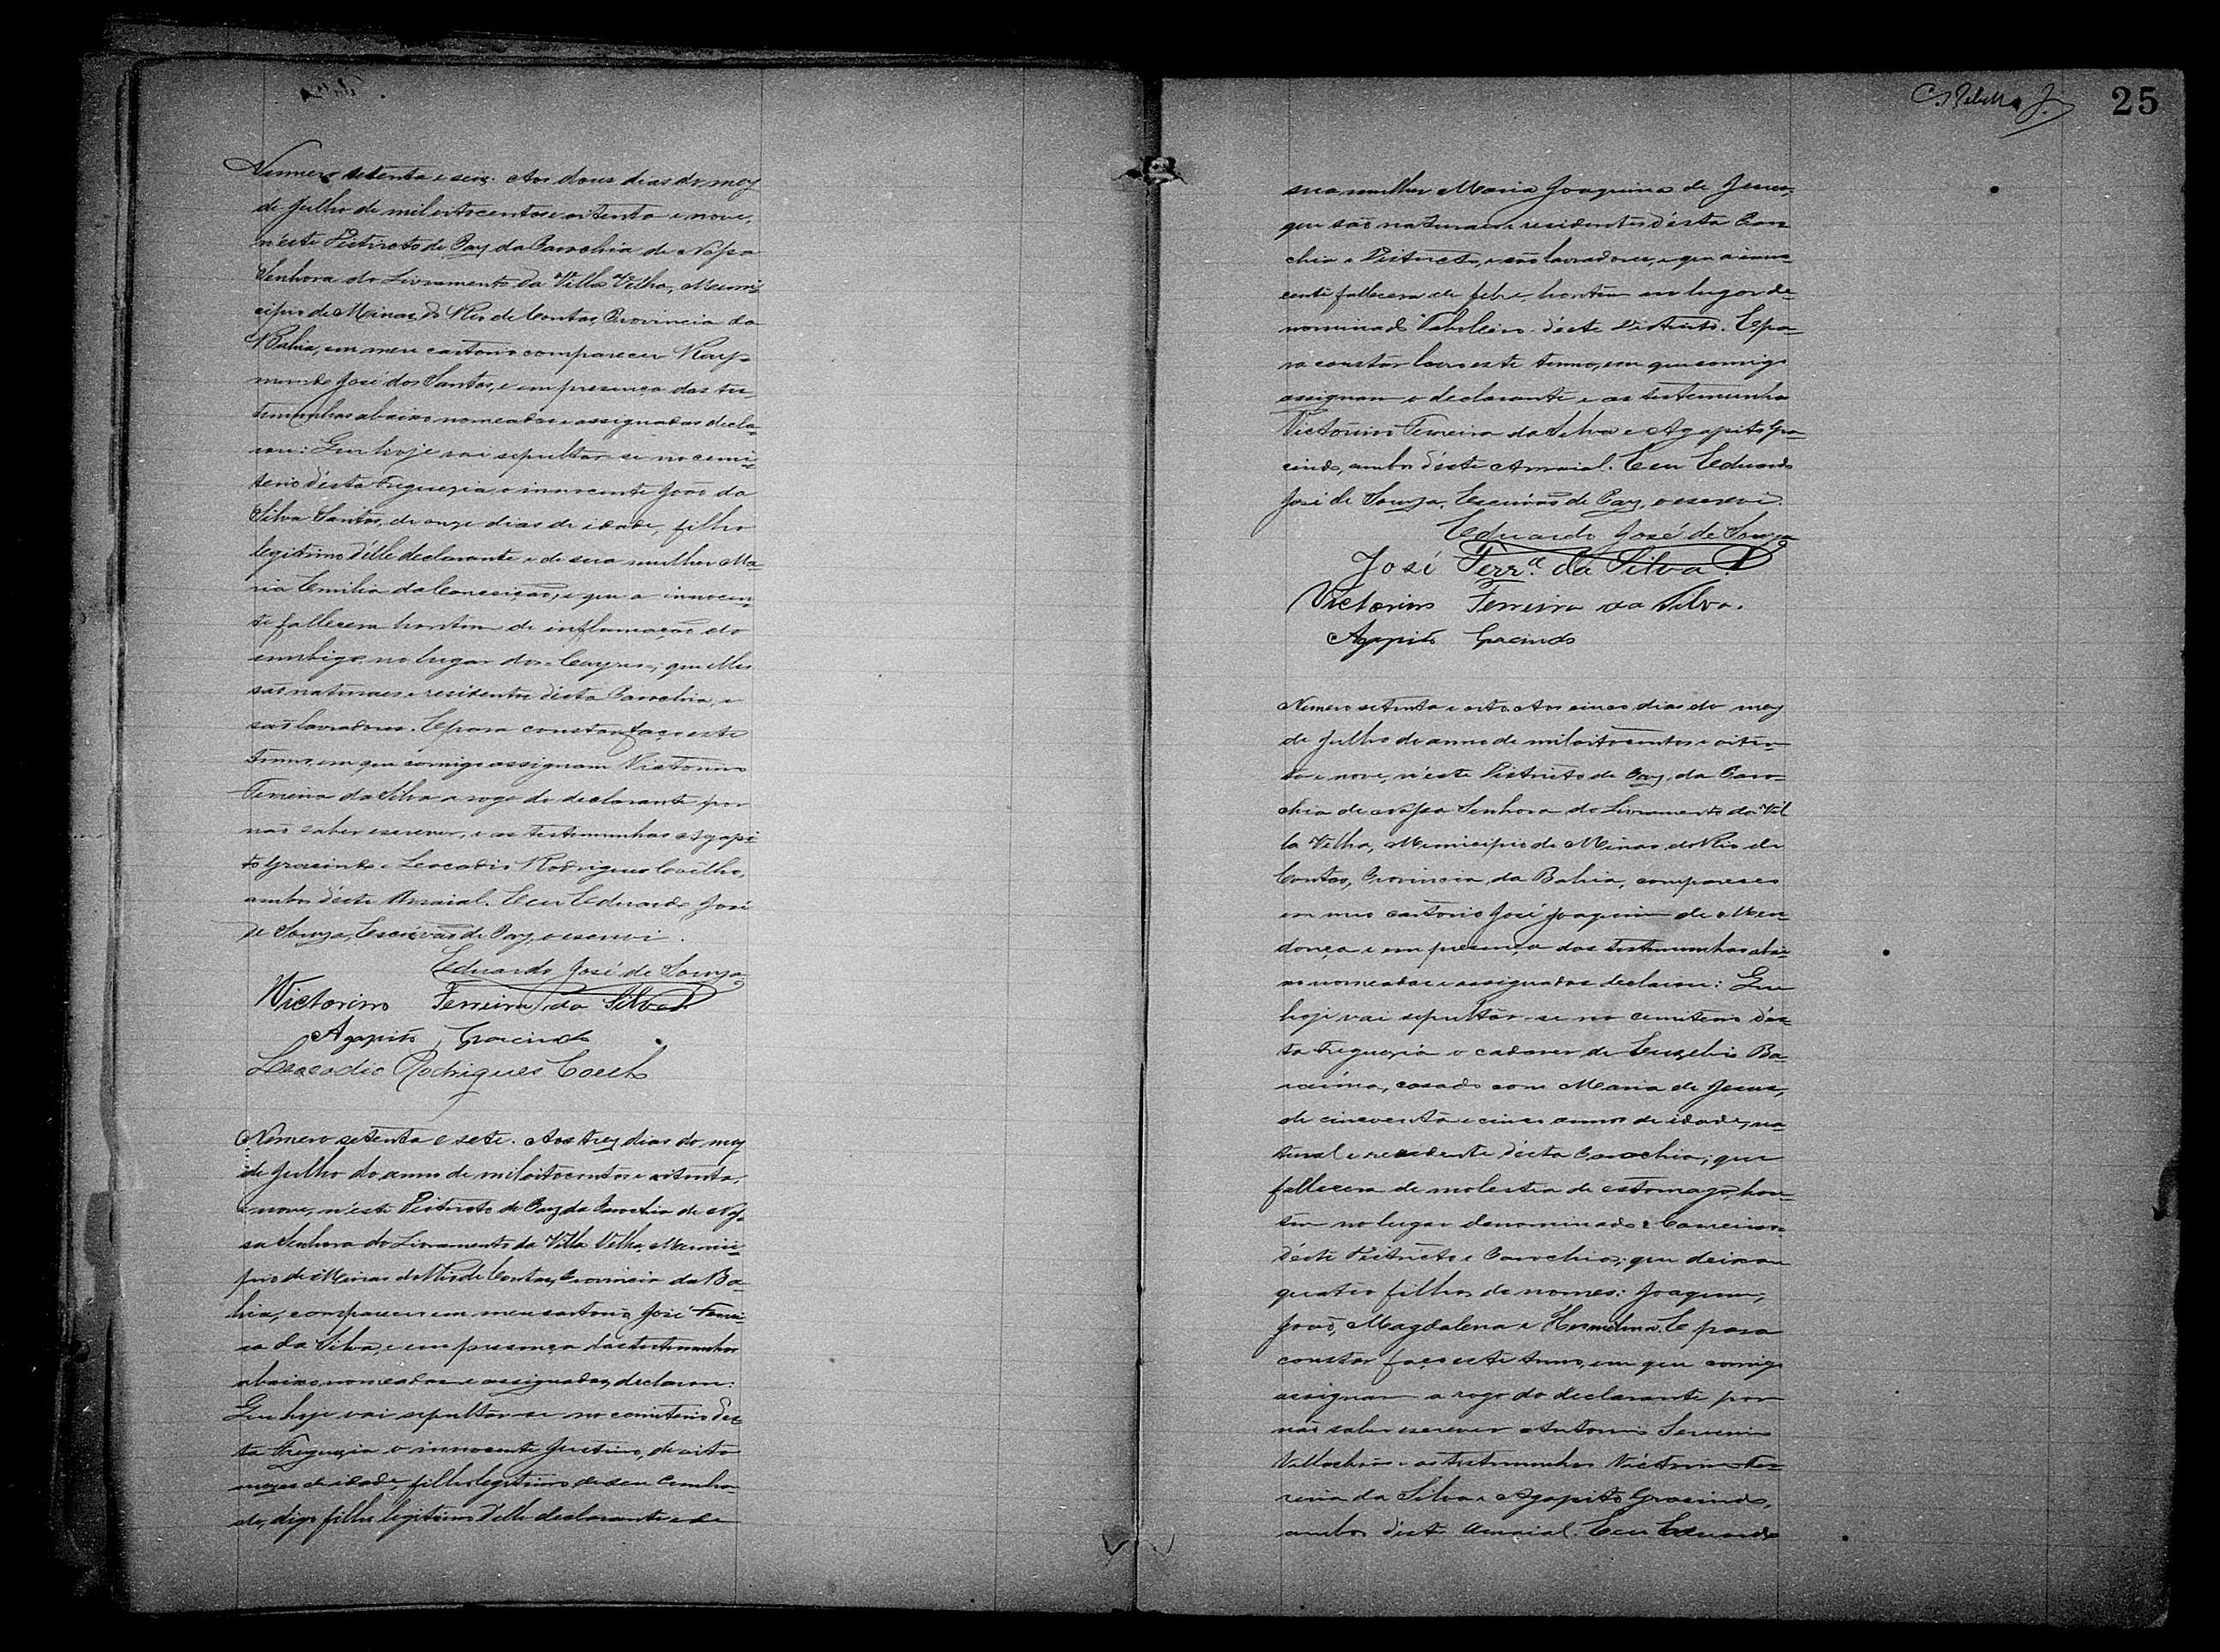 Numero setenta e seis. Aos dous dias do mez
de Julho de mil oitocentos e oitenta e nove,
n'este Districto de Paz da Parochia de Nossa
Senhora do Livramento da Villa Velha, Muni-
cipio de Minas do Rio de Contas, Provincia da
Bahia, em meu cartorio compareceu Ray-
mundo José dos Santos, e em presença das tes-
temunhas abaixo nomeadas e assignadas decla-
rou: Que hoje vai sepultar-se no cemi-
terio d'esta Freguezia o innocente João da
Silva Santos, de onze dias de idade, filho
legitimo d'elle declarante e de sua mulher Ma-
ria Emilia da Conceição, e que o innocen-
te fallecera hontem de inflamação do
embigo, no lugar dos que elles
são naturaes e residentes d'esta Parochia, e
são lavradores. E para constar faço este
termo, em que comigo assignam Victorino
Ferreira da Silva a rogo do declarante por
não saber escrever, e as testemunhas Agapi-
to Gracindo e Leocadio Rodrigues Coêlho,
ambos d'este Arraial. E eu Eduardo José
de Souza, Escrivão de Paz, o escrevi.
Eduardo José de Souza
Victorino Ferreira da Silva
Agapito Gracindo
Leocadio Rodrigues Coelho
Numero setenta e sete. Aos trez dias do mez
de Julho do anno de mil oitocentos e oitenta
e nove, n'este Districto de Paz da Parochia de Nos-
sa Senhora do Livramento da Villa Velha, Munici-
pio de Minas do Rio de Contas, Provincia da Ba-
hia, compareceu em meu cartorio José Ferrei-
ra da Silva, e em presença das testemunhas
abaixo nomeadas e assignadas, declarou:
Que hoje vai sepultar-se no cemiterio d'es-
ta Freguezia o innocente Justino, de oito
mezes de idade, filho legitimo de seu
digo filho legitimo d'elle declarante e de
25
sua mulher Maria Joaquina de Jesus,
que são naturaes e residentes d'esta Paro-
chia e Districto, e são lavradores, e que o inno-
cente fallecera de febre hontem no lugar de-
nominado Taboleiro d'este Districto. E pa-
ra constar lavro este termo, em que comigo
assignam o declarante e as testemunhas
Victorino Ferreira da Silva e Agapito Gra-
cindo, ambos d'este Arraial. E eu Eduardo
José de Souza, Escrivão de Paz, o escrevi.
Eduardo José de Souza
José Ferrª da Silva
Victorino Ferreira da Silva.
Agapito Gracindo
Numero setenta e oito. Aos cinco dias do mez
de Julho do anno de mil oitocentos e oiten-
ta e nove, n'este Districto de Paz da Paro-
chia de Nossa Senhora do Livramento da Vil
la Velha, Municipio de Minas do Rio de
Contas, Provincia da Bahia, compareceo
em meo cartorio José Joaquim de Men-
donça e em presença das testemunhas abai-
xo nomeadas e assignadas declarou: Que
hoje vai sepultar-se no cemiterio d'es-
ta Freguezia o cadaver de Euzebio Ba-
casado com Maria de Jesus,
de cincoenta e cinco annos de idade, na-
tural e residente d'esta Parochia; que
fallecera de molestia de estomago, hon-
tem no lugar denominado
d'este Districto e Parochia; que deixou
quatro filhos de nomes: Joaquim,
João, Magdalena e Hermelina. E para
constar faço este termo, em que comigo
assignam a rogo do declarante por
não saber escrever Antonio
e as testemunhas Victorino Fer-
reira da Silva e Agapito Gracindo,
ambos d'este Arraial. E eu Eduardo